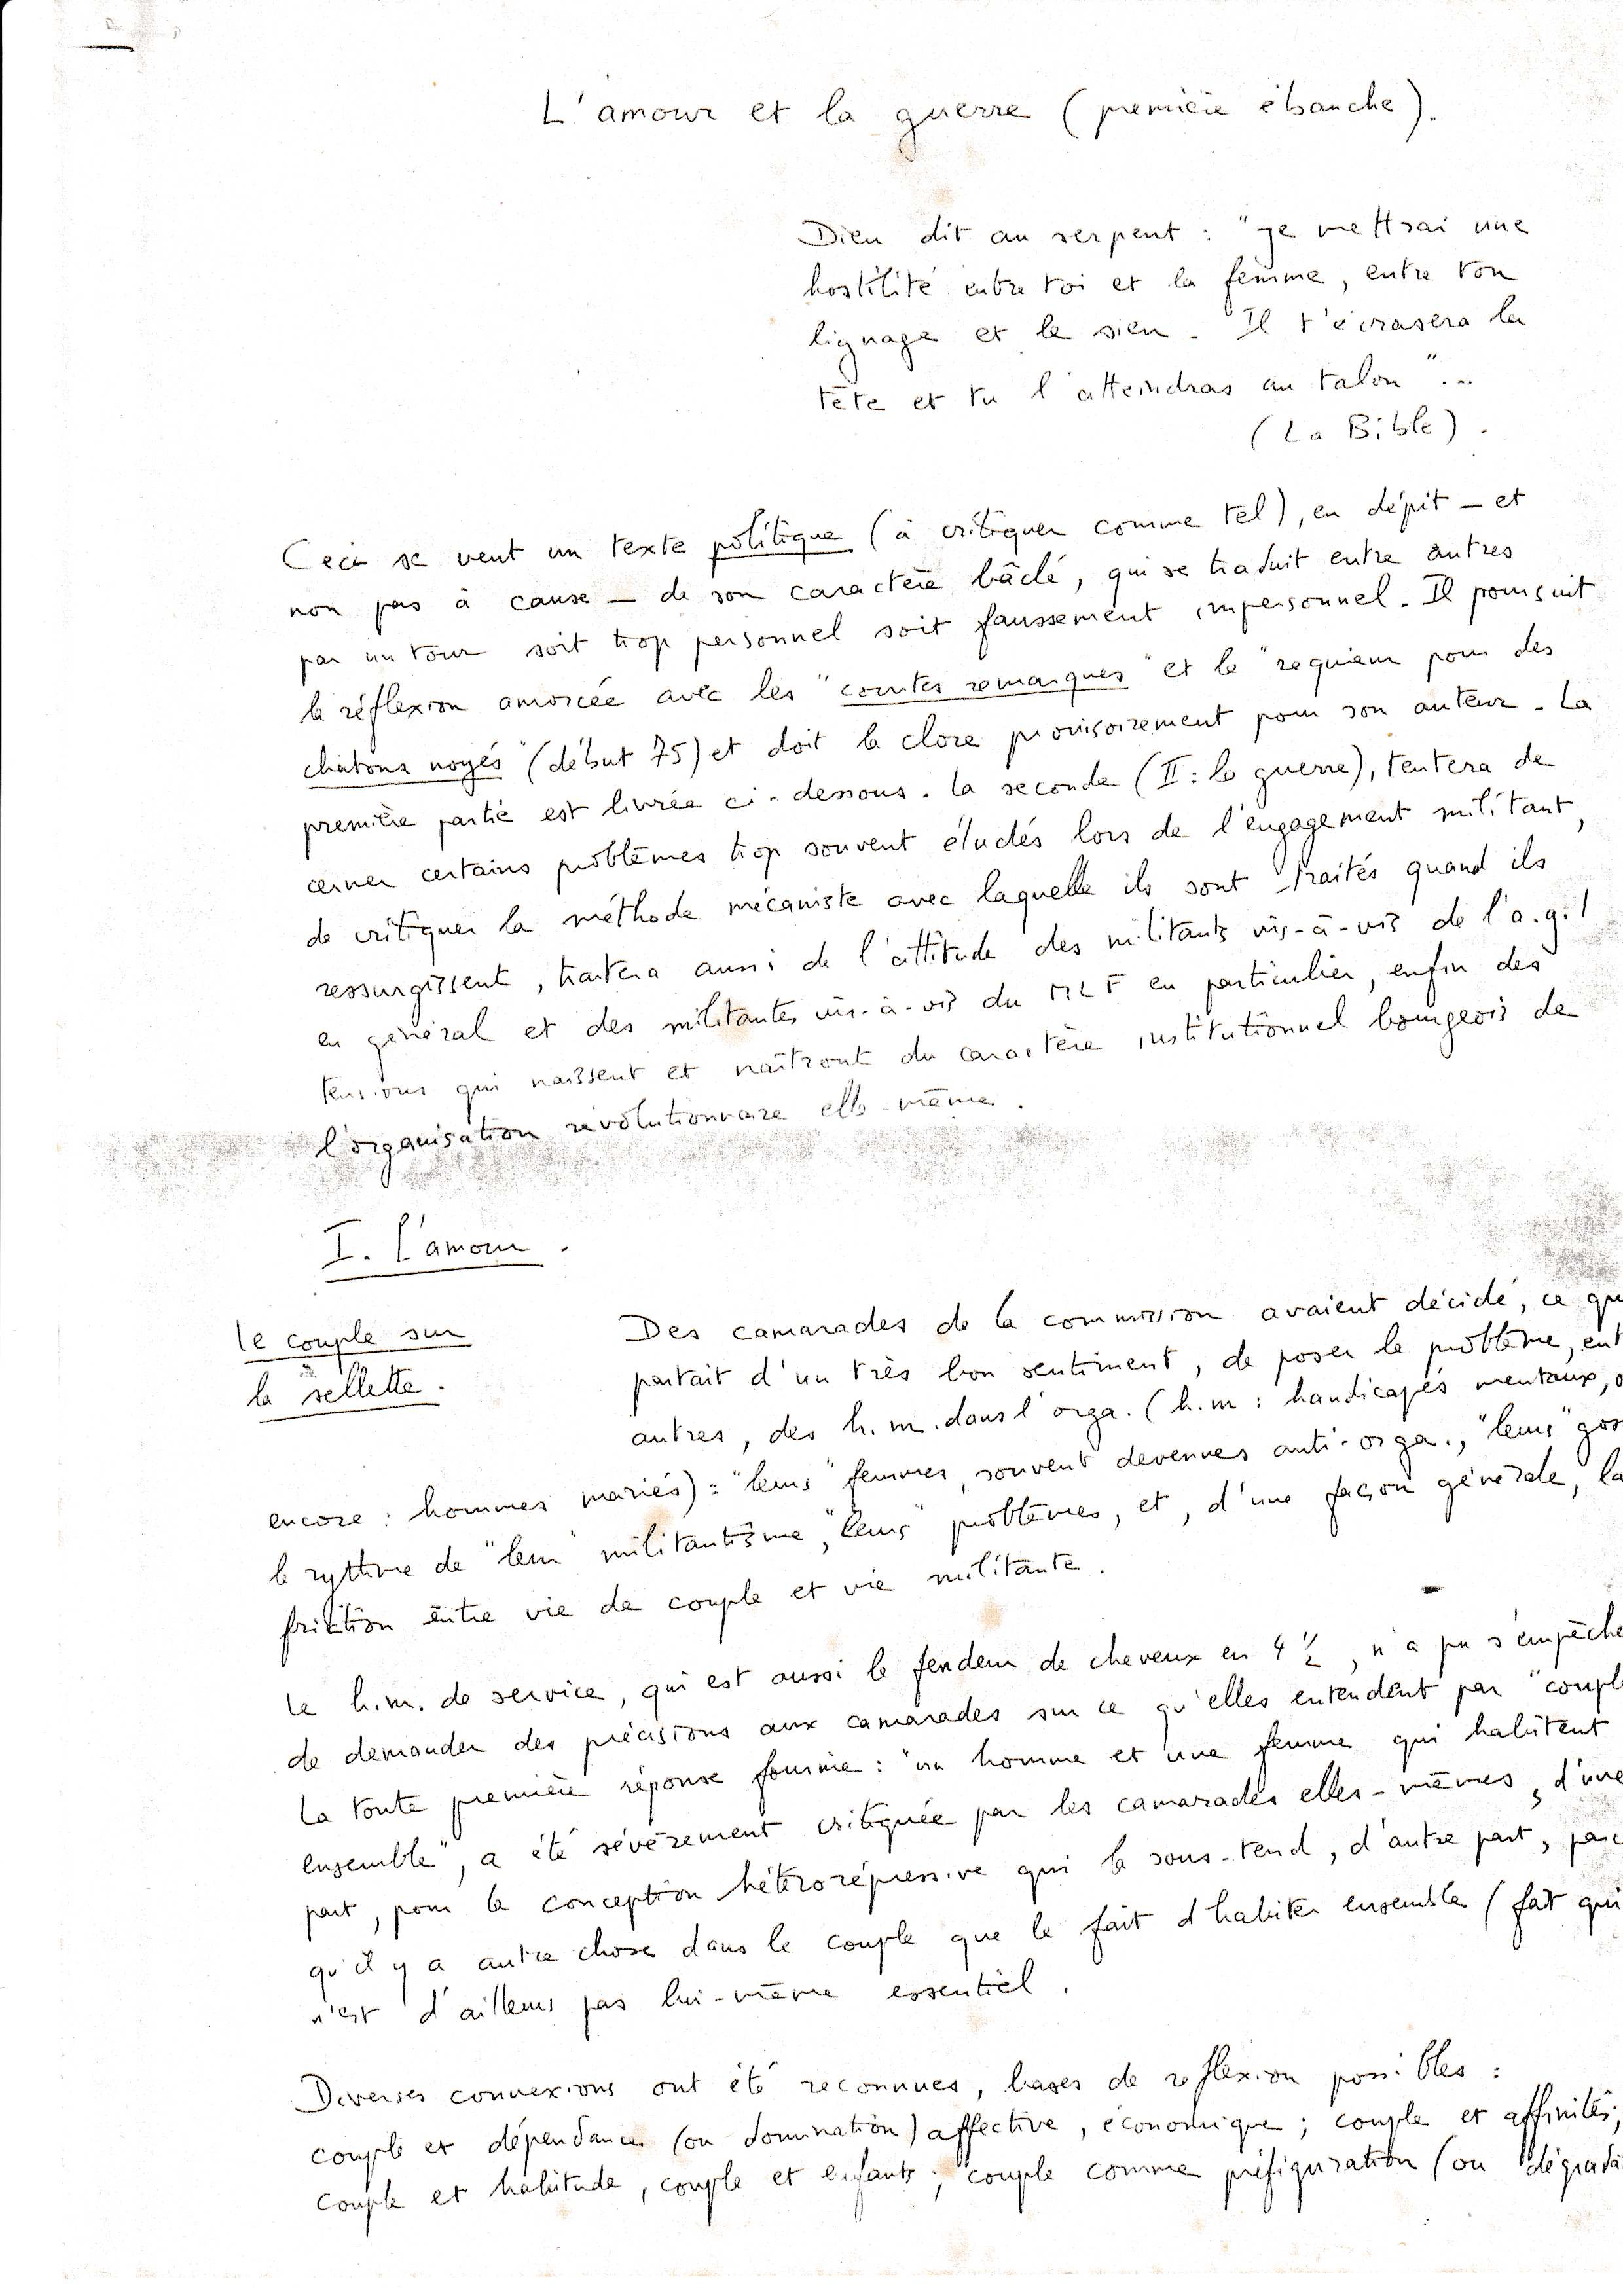 L'amour et la guerre (première ébauche).
Dieu dit au serpent : "je mettrai une
hostilité entre toi et la femme, entre ton
lignage et le sien. Il t'écrasera la
tête et tu l'atteindras au talon"...
(La Bible).
Ceci se veut un texte politique (à critiquer comme tel), en dépit - et
non pas à cause - de son caractère bâclé, qui se traduit entre autres
par un tour soit trop personnel soit faussement impersonnel. Il poursuit
la réflexion amorcée avec les "courtes remarques" et le "requiem pour des
chatons noyés" (début 75) et doit la clore provisoirement pour son auteur. La
première partie est livrée ci-dessous. La seconde (II : la guerre), tentera de
cerner certains problèmes trop souvent éludés lors de l'engagement militant,
de critiquer la méthode mécaniste avec laquelle ils sont traités quand ils
ressurgissent, traitera aussi de l'attitude des militants vis-à-vis de l'a.g.!
en général et des militantes vis-à-vis du MLF en particulier, enfin des
tensions qui naissent et naîtront du caractère institutionnel bourgeois de
l'organisation révolutionnaire elle-même.
I. L'amour.
le couple sur
la sellette.
Des camarades de la commission avaient décidé, ce qu
partait d'un très bon sentiment, de poser le problème, ent
autres, des h.m. dans l'orga. (h.m : handicapés mentaux, o
encore : hommes mariés) : "leurs" femmes, souvent devenues anti-orga., "leurs" gos
le rythme de "leur" militantisme, "leurs" problèmes, et, d'une façon générale, la
friction entre vie de couple et vie militante.
Le h.m. de service, qui est aussi le fendeur de cheveux en 4 1/2, n'a pu s'empêche
de demander des précisions aux camarades sur ce qu'elles entendent par "couple
La toute première réponse fournie : "un homme et une femme qui habitent
ensemble", a été sévèrement critiquée par les camarades elles-mêmes, d'une
part, pour la conception hétérorépressive qui la sous-tend, d'autre part, parc
qu'il y a autre chose dans le couple que le fait d'habiter ensemble (fait qui
n'est d'ailleurs pas lui-même essentiel.
Diverses connexions ont été reconnues, bases de reflexion possibles :
couple et dépendance (ou domination) affective, économique ; couple et affinités ;
couple et habitude, couple et enfants ; couple comme préfiguration (ou dégrada